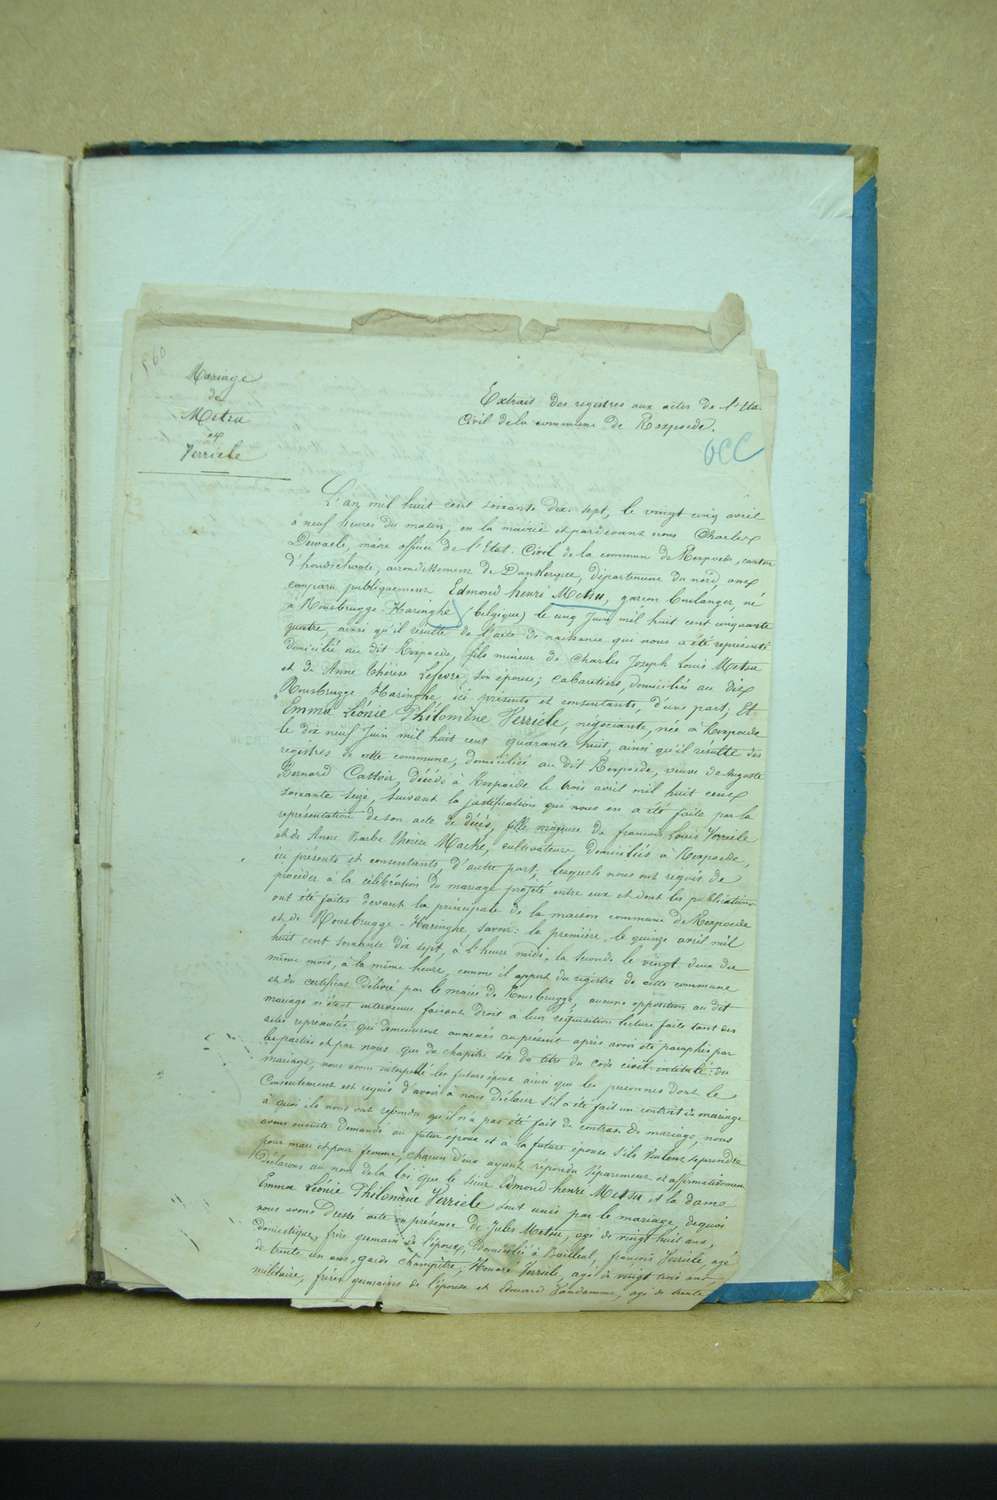 860
Mariage
de
Metsu
et
Verriele
Extrait des registres aux actes de l'Etat
Civil de la commune de Rexpoede.
OCC
L'an mil huit cent soixante dix-sept, le vingt cinq avril
à neuf heures du matin, en la mairie et pardevant nous Charles
Dewaele, maire officier de l'Etat-Civil de la commune de Rexpoede, canton
d'hondschoote, arrondissement de Dunkerque, département du nord, ont
comparu publiquement Edmond henri Metsu, garçon boulanger, né
à Rousbrugge-Haringhe (Belgique) le cinq Juin mil huit cent cinquante
quatre, ainsi qu'il résulte de l'acte de naissance que nous a été représenté
domicilié au dit Rexpoede, fils mineur de Charles Joseph Louis Metsu
et de Anne Thérèse Lefevre, son épouse; cabaretiers, domiciliés au dit
Rousbrugge-Haringhe, ici présents et consentants, d'une part; Et
Emma Léonie Philomène Verriele, négociante, née à Rexpoede
le dix neuf Juin mil huit cent quarante huit, ainsi qu'il résulte des
registres de cette commune, domiciliée au dit Rexpoede, veuve de Auguste
Bernard Cattoir, décédé à Rexpoede le trois avril mil huit cent
soixante seize, suivant la justification que nous en a été faite par la
représentation de son acte de décès, fille majeure de francois Louis Verriele
et de Anne Barbe Thérèse Macke, cultivateurs domiciliés à Rexpoede,
ici présents et consentants, d'autre part, lesquels nous ont requis de
procéder à la célébration du mariage projeté entre eux et dont les publications
ont été faites devant la principale de la maison commune de Rexpoede
et de Rousbrugge-Haringhe, savoir: la première, le quinze avril mil
huit cent soixante dix sept, à l'heure midi, la seconde le vingt deux du
même mois, à la même heure, comme il appert du registre de cette commune
et du certificat délivré par le maire de Rousbrugge, aucune opposition au dit
mariage n'étant intervenue faisant droit à leur réquisition lecture faite tant des
actes représentés qui demeureront annexés au présent après avoir été paraphés par
les parties et par nous que du chapitre six du titre du Code civil intitulé: du
mariage, nous avons interpellé les futurs époux ainsi que les personnes dont le
Consentement est requis d'avoir à nous déclarer s'il a été fait un contrat de mariage
à quoi ils nous ont répondu qu'il n'a pas été fait de contrat de mariage, nous
avons ensuite demandé au futur époux et à la future épouse s'ils veulent se prendre
pour mari et pour femme, chacun d'eux ayant répondu séparément et affirmativement
Déclarons au nom de la loi que le sieur Edmond henri Metsu et la dame
Emma Léonie Philomène Verriele sont unis par le mariage, de quoi
nous avons Dressé acte en présence de Jules Metsu, agé de vingt huit ans,
domestique, frère germain de l'époux, domicilié à Bailleul, françois Verriele, agé
de trente un ans, garde champêtre, Honoré Verriele, agé de vingt trois ans
militaire, frères germains de l'épouse et Edouard Vandamme, agé de trente